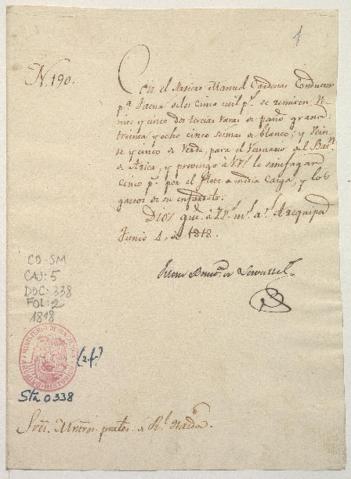 N. 190.
Con el Arriero Manuel Cardenas Conductor
pª Tacna de los cinco mil pˢ se remiten
y cinco dos tercias varas de paño grana
treinta y ocho cinco sesmas de blanco, y
se y cinco de Verde, para el Vestuario del Batⁿ
de Arica, y prevengo a VMˢ le satisfagan
cinco pˢ por el flete a media Carga, y los
gastos de su
Dios gue. a VMˢ mˢ aˢ Arequipa
Junio 1. de 1818.
CD-SM
CAJ: 5
DOC: 338
FOL: 2
1818
(2f.)
Sta 0338
Sres. Mntros. de Rˡ Hazdª